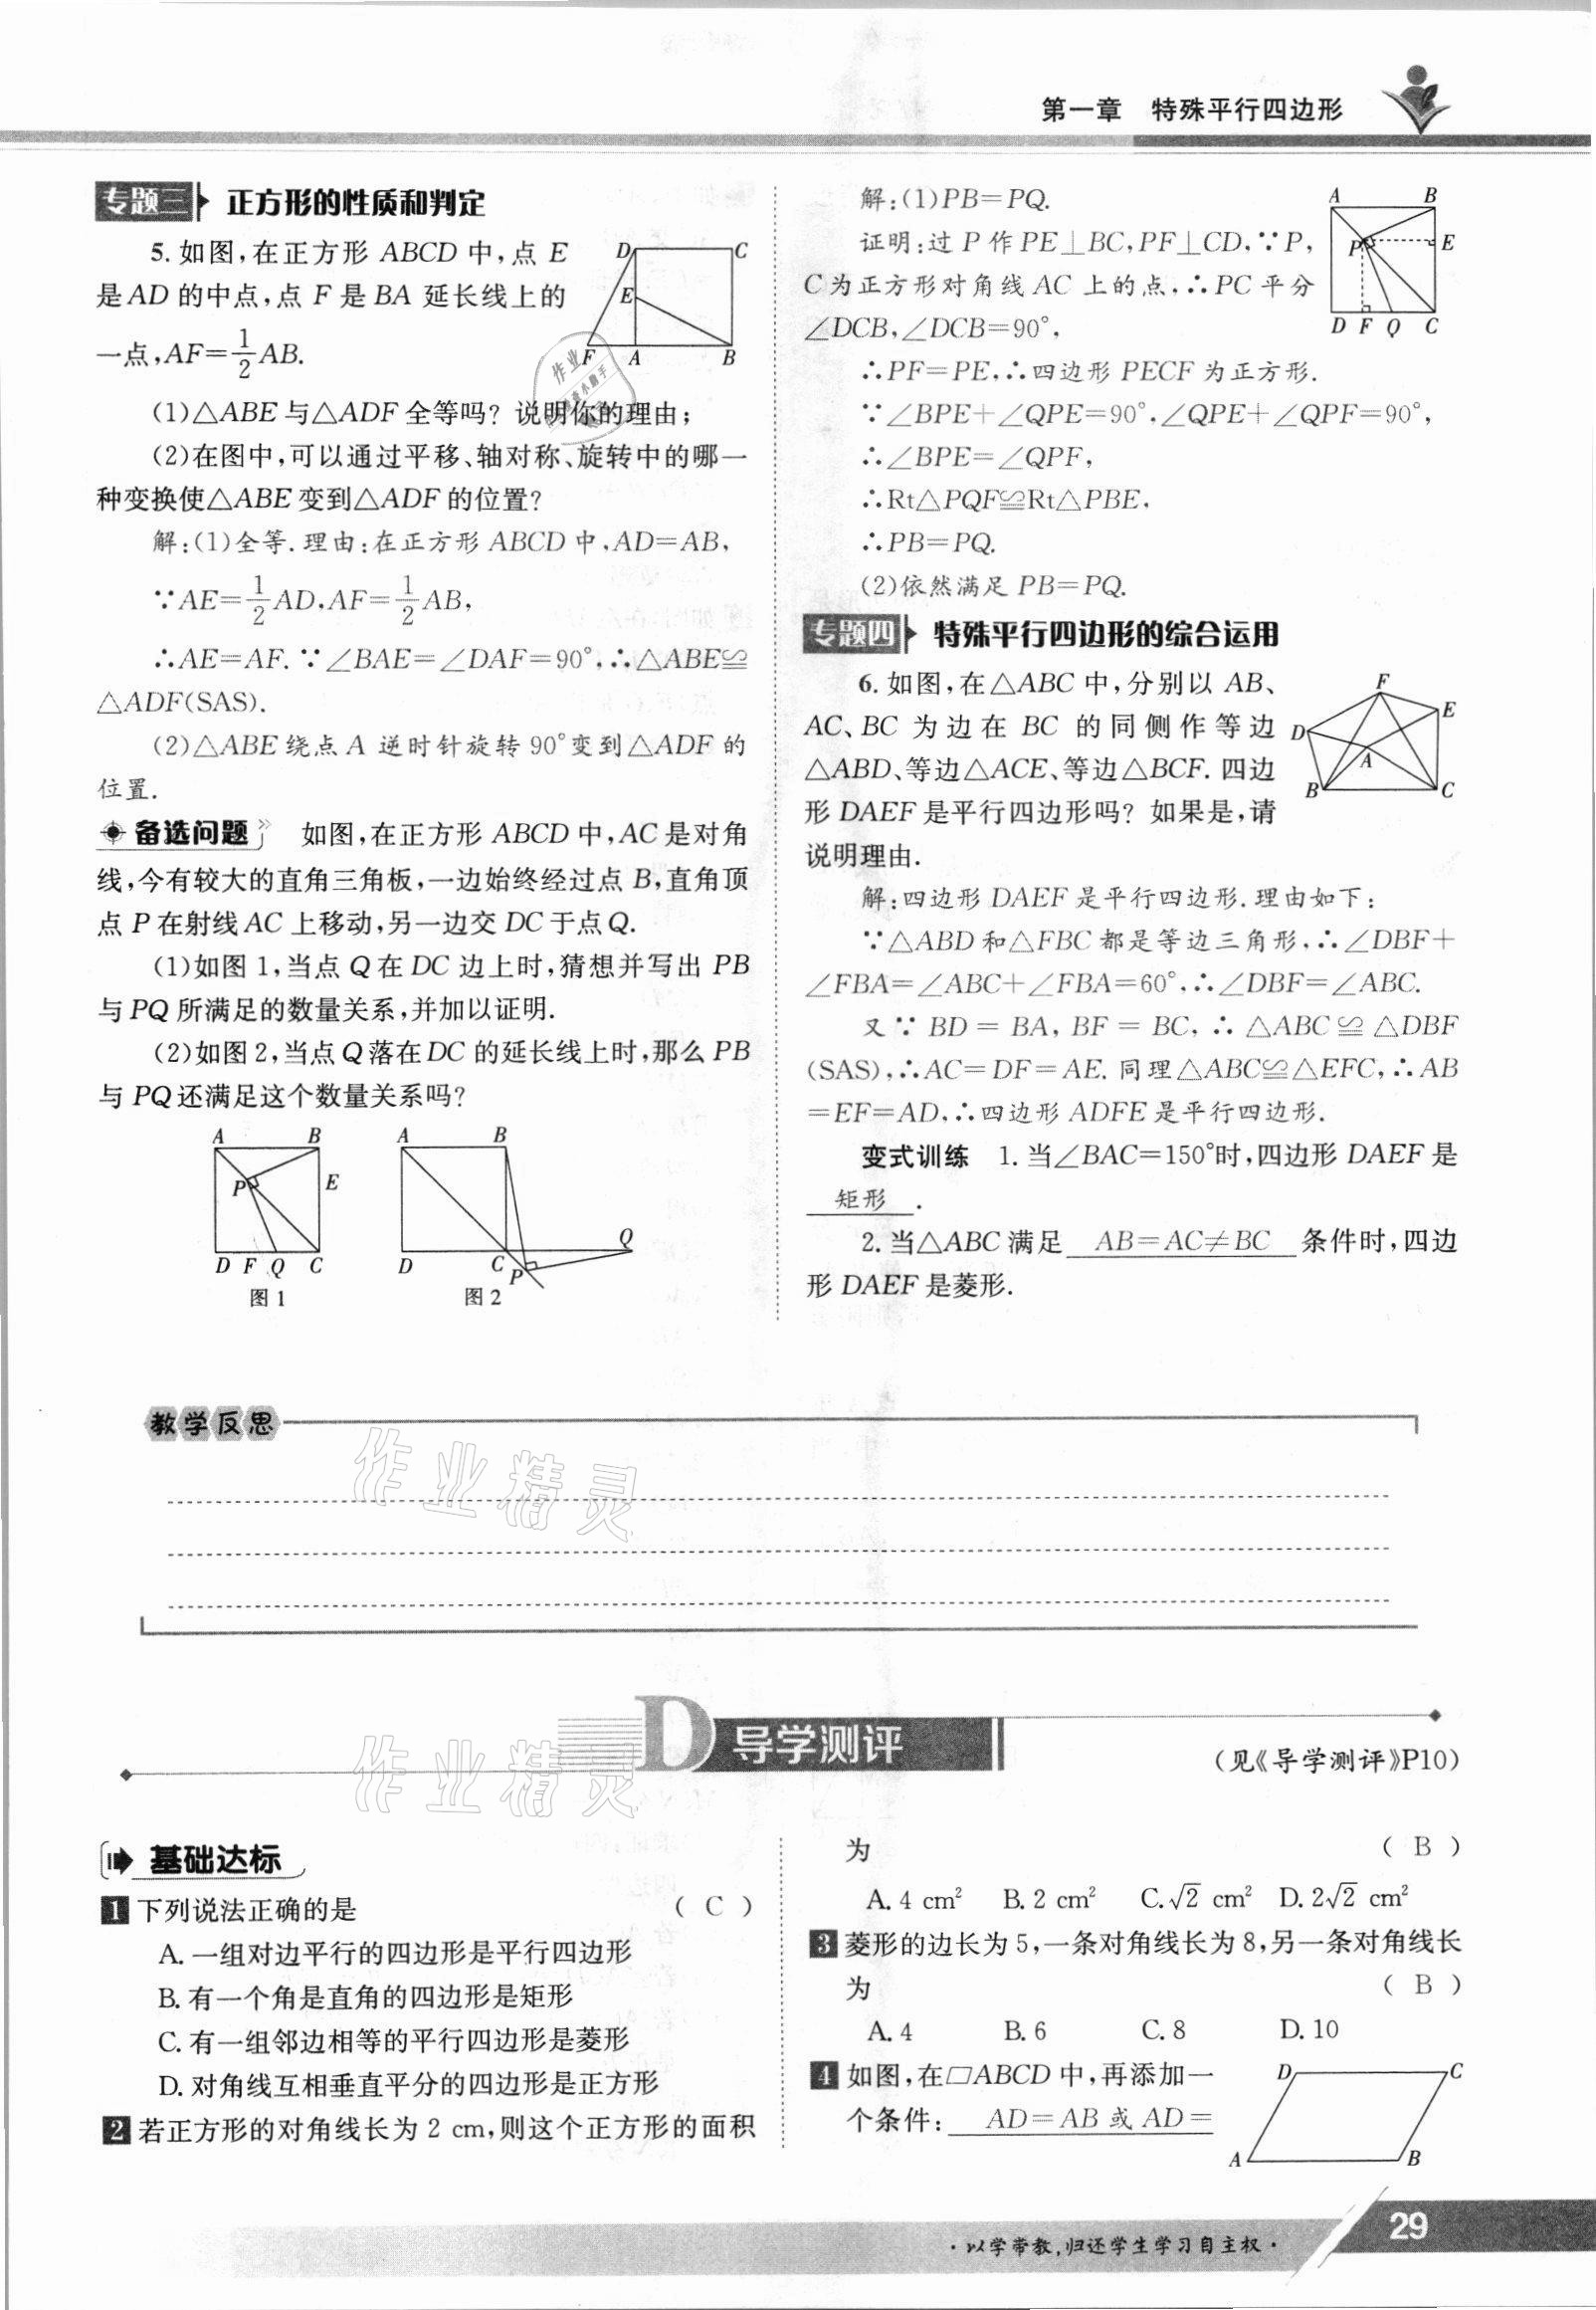 第一章 特殊平行四边形
专题三 正方形的性质和判定
5. 如图,在正方形 ABCD 中,点 E
是AD 的中点,点 F 是 BA 延长线上的
一点,AF=1/2AB.
D C E F A B
(1)△ABE与△ADF 全等吗? 说明你的理由;
(2)在图中,可以通过平移、轴对称、旋转中的哪一
种变换使△ABE 变到△ADF 的位置?
解:(1)全等.理由:在正方形 ABCD 中,AD=AB,
∵AE=1/2AD,AF=1/2AB,
∴AE=AF. ∵∠BAE=∠DAF=90°,∴△ABE≌
△ADF(SAS).
(2)△ABE 绕点 A 逆时针旋转 90°变到△ADF 的
位置.
备选问题 如图,在正方形 ABCD 中,AC 是对角
线,今有较大的直角三角板,一边始终经过点 B,直角顶
点 P 在射线 AC 上移动,另一边交 DC 于点 Q.
(1)如图 1,当点 Q 在 DC 边上时,猜想并写出 PB
与 PQ 所满足的数量关系,并加以证明.
(2)如图 2,当点 Q 落在 DC 的延长线上时,那么 PB
与 PQ 还满足这个数量关系吗?
A B P E D F Q C
图 1
A B D C P Q
图 2
解:(1)PB=PQ.
证明:过 P 作 PE⊥BC,PF⊥CD,∵P,
C 为正方形对角线 AC 上的点,∴PC 平分
∠DCB,∠DCB=90°,
A B P E D F Q C
∴PF=PE,∴四边形 PECF 为正方形.
∵∠BPE+∠QPE=90°,∠QPE+∠QPF=90°,
∴∠BPE=∠QPF,
∴Rt△PQF≌Rt△PBE,
∴PB=PQ.
(2)依然满足 PB=PQ.
专题四 特殊平行四边形的综合运用
6. 如图,在△ABC 中,分别以 AB、
AC、BC 为边在 BC 的同侧作等边
△ABD、等边△ACE、等边△BCF. 四边
形 DAEF 是平行四边形吗? 如果是,请
说明理由.
F E D A B C
解:四边形 DAEF 是平行四边形.理由如下:
∵△ABD 和△FBC 都是等边三角形,∴∠DBF+
∠FBA=∠ABC+∠FBA=60°,∴∠DBF=∠ABC.
又∵ BD = BA, BF = BC, ∴ △ABC ≌ △DBF
(SAS),∴AC=DF=AE. 同理△ABC≌△EFC,∴AB
=EF=AD,∴四边形 ADFE 是平行四边形.
变式训练 1. 当∠BAC=150°时,四边形 DAEF 是
矩形.
2. 当△ABC 满足 AB=AC≠BC 条件时,四边
形 DAEF 是菱形.
教学反思
作业精灵
D 导学测评
(见《导学测评》P10)
作业精灵
基础达标
1 下列说法正确的是 ( C )
A. 一组对边平行的四边形是平行四边形
B. 有一个角是直角的四边形是矩形
C. 有一组邻边相等的平行四边形是菱形
D. 对角线互相垂直平分的四边形是正方形
2 若正方形的对角线长为 2 cm,则这个正方形的面积
为 ( B )
A. 4 cm² B. 2 cm² C. √2 cm² D. 2√2 cm²
3 菱形的边长为 5,一条对角线长为 8,另一条对角线长
为 ( B )
A. 4 B. 6 C. 8 D. 10
4 如图,在□ABCD 中,再添加一
个条件: AD=AB 或 AD=
D C A B
·以学带教,归还学生学习自主权·
29